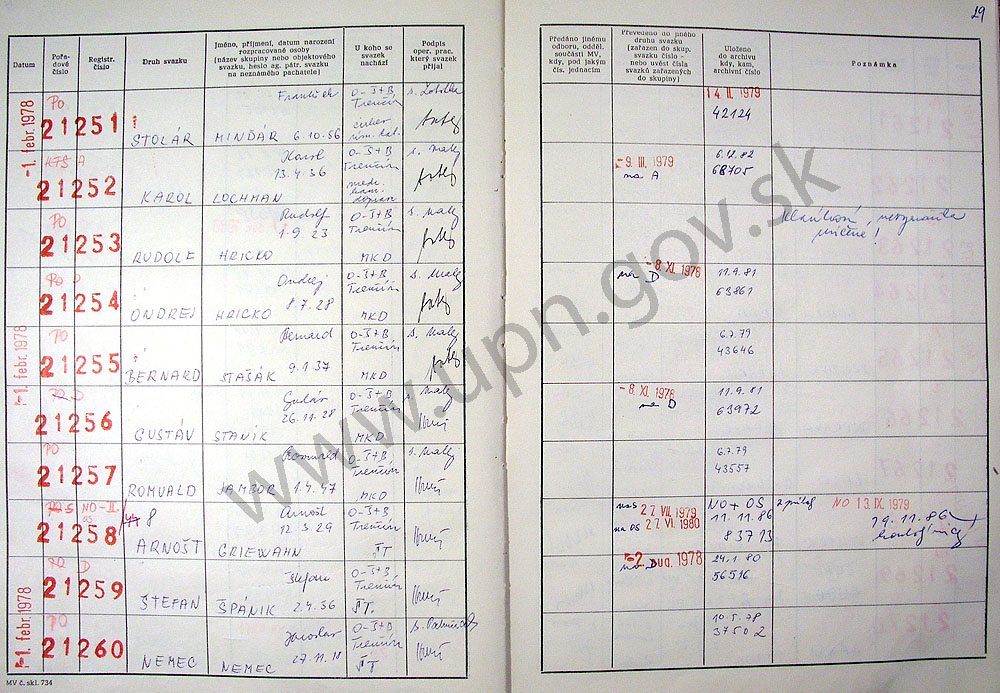 19
Datum
Pořa-
dové
číslo
Registr.
číslo
Druh svazku
Jméno, příjmení, datum narození
rozpracované osoby
(název skupiny nebo objektového
svazku, heslo ag. pátr. svazku
na neznámého pachatele)
U koho se
svazek
nachází
Podpis
oper. prac.
který svazek
přijal
Předáno jinému
odboru, odděl.
součásti MV,
kdy, pod jakým
čís. jednacím
Převedeno do jiného
druhu svazku
(zařazen do skup.
svazku číslo -
nebo uvést čísla
svazků zařazených
do skupiny)
Uloženo
do archivu
kdy, kam,
archivní číslo
Poznámka
-1. febr. 1978
PO
21251
STOLÁR
František
MINDÁR 6.10.56
O-ŠtB
Trenčín
14. II. 1979
42124
KTS A
21252
KAROL
Karol
13.4.36
LOCHMAN
O-ŠtB
Trenčín
s. Malej
-9. III. 1979
na A
6.12.82
68705
PO
21253
RUDOLF
Rudolf
1.9.23
HRICKO
O-ŠtB
Trenčín
MKD
s. Malej
PO
21254
ONDREJ
Ondrej
8.7.28
HRICKO
O-ŠtB
Trenčín
MKD
s. Malej
-8. XI. 1978
na D
11.9.81
63861
-1. febr. 1978
PO
21255
BERNARD
Bernard
9.1.37
STAŠÁK
O-ŠtB
Trenčín
MKD
s. Malej
6.7.79
43646
21256
GUSTÁV
26.11.28
STANÍK
O-ŠtB
Trenčín
MKD
s. Malej
-8. XI. 1978
na D
11.9.81
63972
PO
21257
ROMUALD
Romuald
JAMBOR 1.4.47
O-ŠtB
Trenčín
MKD
s. Malej
6.7.79
43557
NO-II.
OS
21258
8
ARNOŠT
Arnošt
12.3.29
GRIEWAHN
O-ŠtB
Trenčín
ŠT
27. VII. 1979
na OS 27. VI. 1980
NO + OS
11.11.86
83713
NO 13. IX. 1979
19.11.86
PO D
21259
ŠTEFAN
Štefan
ŠPÁNIK 2.4.36
O-ŠtB
Trenčín
ŠT.
-2. aug. 1978
na D
24.1.80
56516
-1. febr. 1978
PO
21260
NEMEC
Jaroslav
27.11.18
NEMEC
O-ŠtB
Trenčín
ŠT
10.5.78
37502
MV č. skl. 734
www.upn.gov.sk